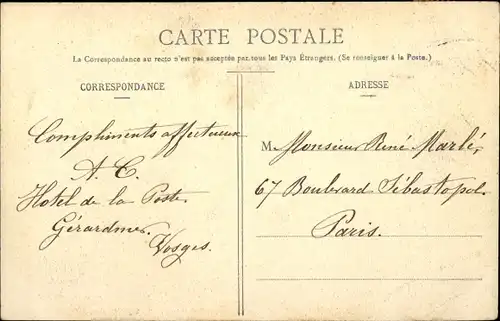 CARTE POSTALE
La Correspondance au recto n'est pas acceptée par tous les Pays Étrangers. (Se renseigner à la Poste.)
CORRESPONDANCE
Compliments affectueux
A. C.
Hotel de la Poste
Gérardmer.
Vosges.
ADRESSE
M. Monsieur René Marlé,
67 Boulevard Sébastopol.
Paris.